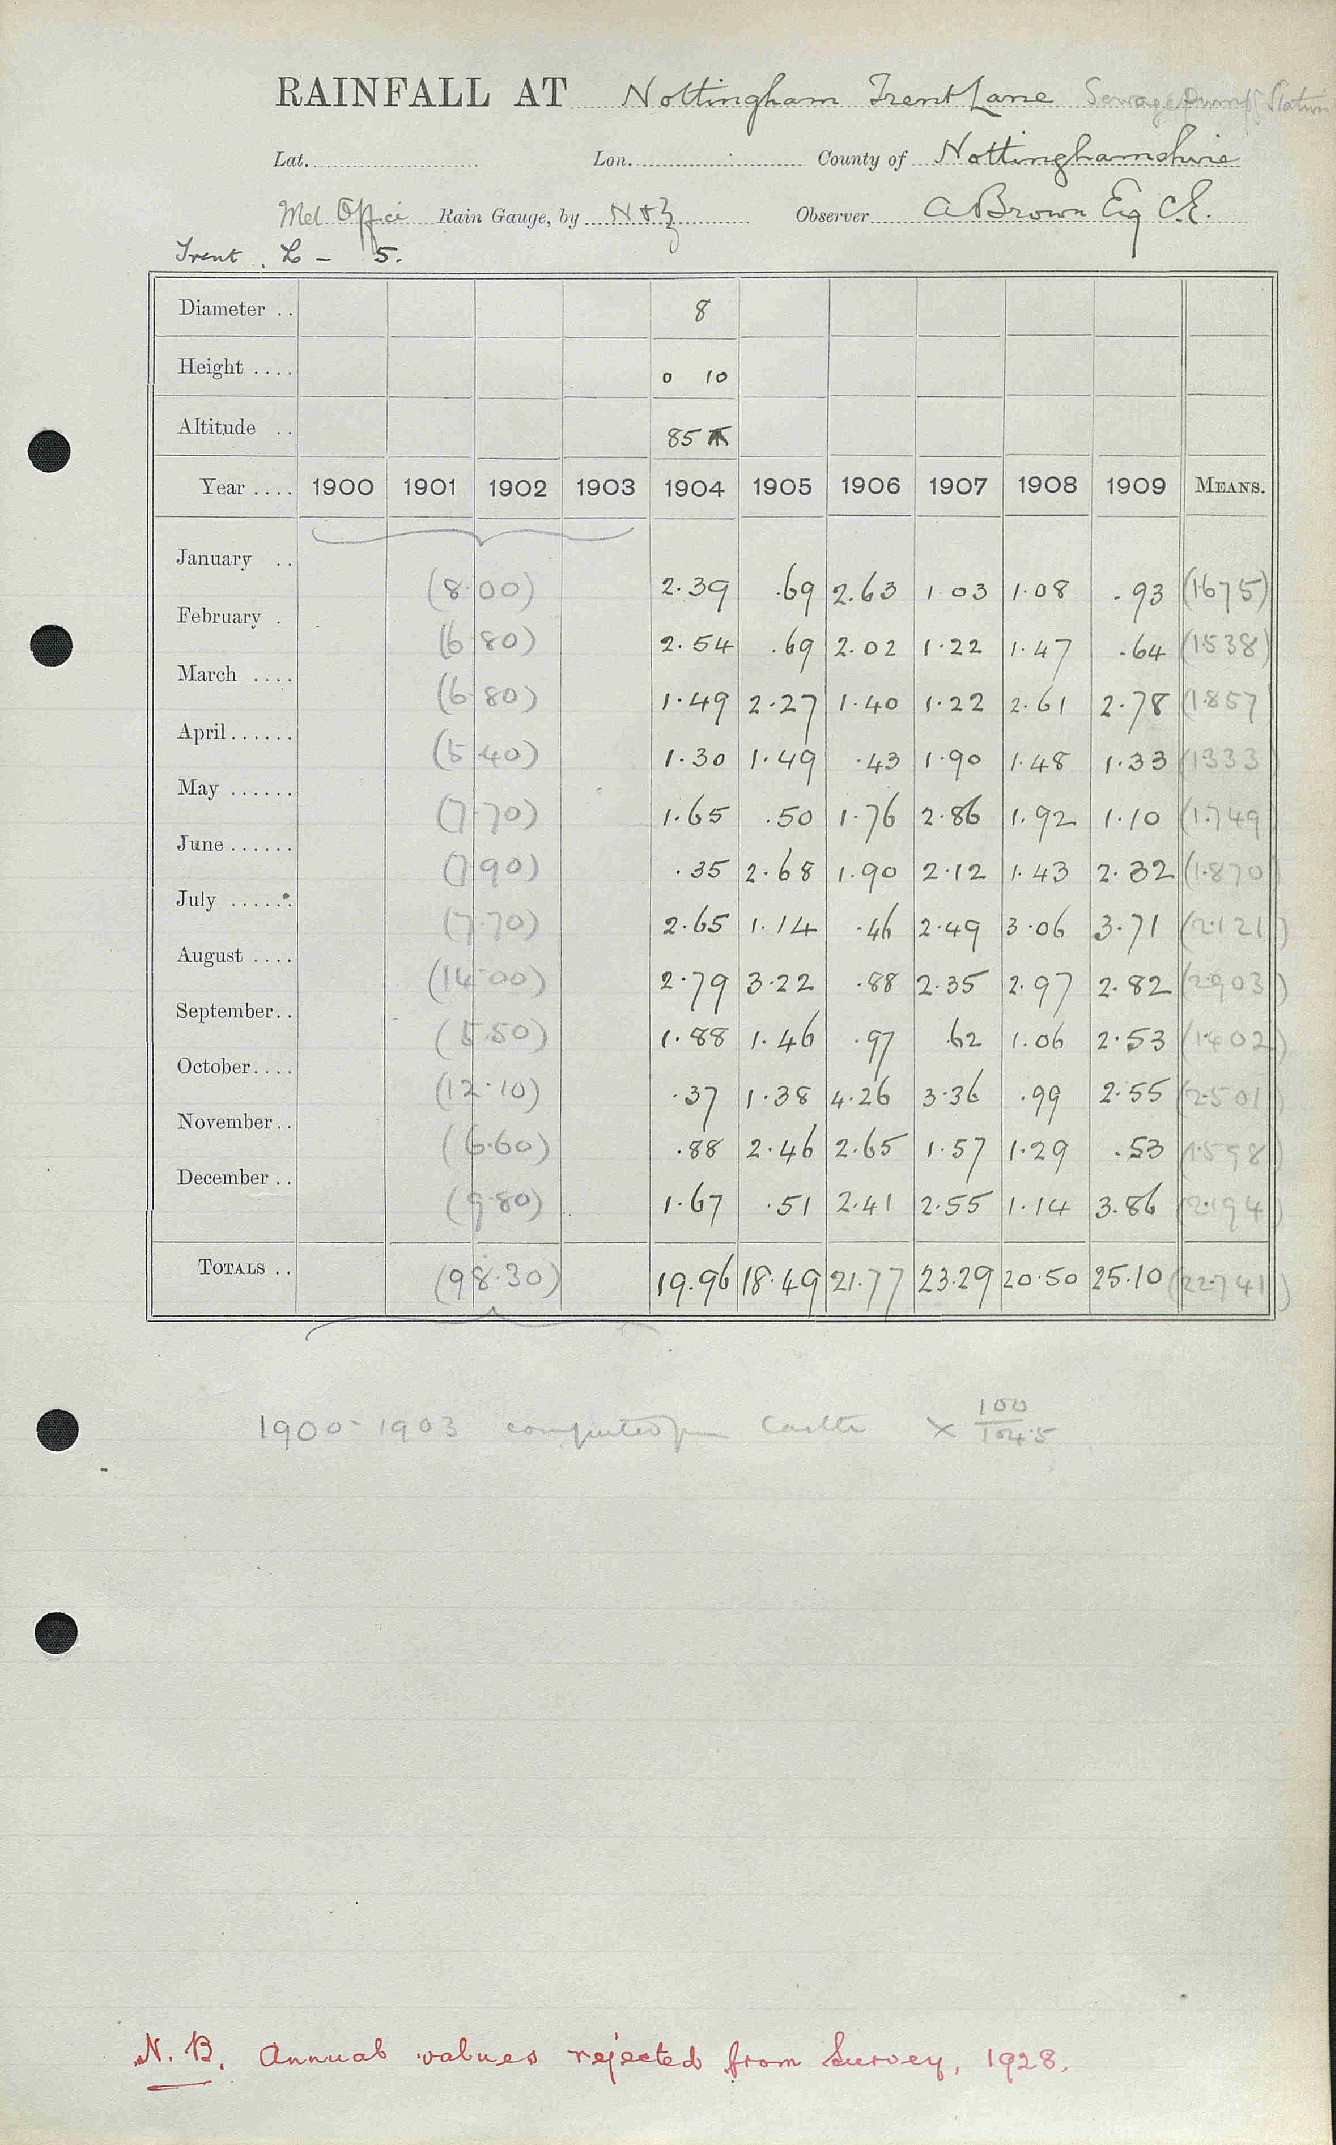 RAINFALL AT Nottingham Trent Lane Sewage Pumpg Station
Lat. Lon. County of Nottinghamshire
Met Office Rain Gauge, by N & Z Observer A Brown Esq C.E.
Trent. L – 5.
Diameter .. 8
Height .... 0 10
Altitude .. 85
Year .... 1900 1901 1902 1903 1904 1905 1906 1907 1908 1909 MEANS.
January .. (8.00) 2.39 .69 2.63 1.03 1.08 .93 (1.675)
February . (6.80) 2.54 .69 2.02 1.22 1.47 .64 (1.538)
March .... (6.80) 1.49 2.27 1.40 1.22 2.61 2.78 (1.857
April...... (5.40) 1.30 1.49 .43 1.90 1.48 1.33 (1.333)
May ...... (7.70) 1.65 .50 1.76 2.86 1.92 1.10 (1.749
June...... (7.90) .35 2.68 1.90 2.12 1.43 2.32 (1.870)
July ...... (7.70) 2.65 1.14 .46 2.49 3.06 3.71 (2.121)
August .... (14.00) 2.79 3.22 .88 2.35 2.97 2.82 (2.903)
September.. (5.50) 1.88 1.46 .97 .62 1.06 2.53 (1.402)
October.... (12.10) .37 1.38 4.26 3.36 .99 2.55 (2.501)
November.. (6.60) .88 2.46 2.65 1.57 1.29 .53 (1.598)
December .. (9.80) 1.67 .51 2.41 2.55 1.14 3.86 (2.194)
TOTALS .. (98.30) 19.96 18.49 21.77 23.29 20.50 25.10 (22.741)
1900-1903 computed from Castle × 100/104.5
N.B. Annual values rejected from Survey, 1928.